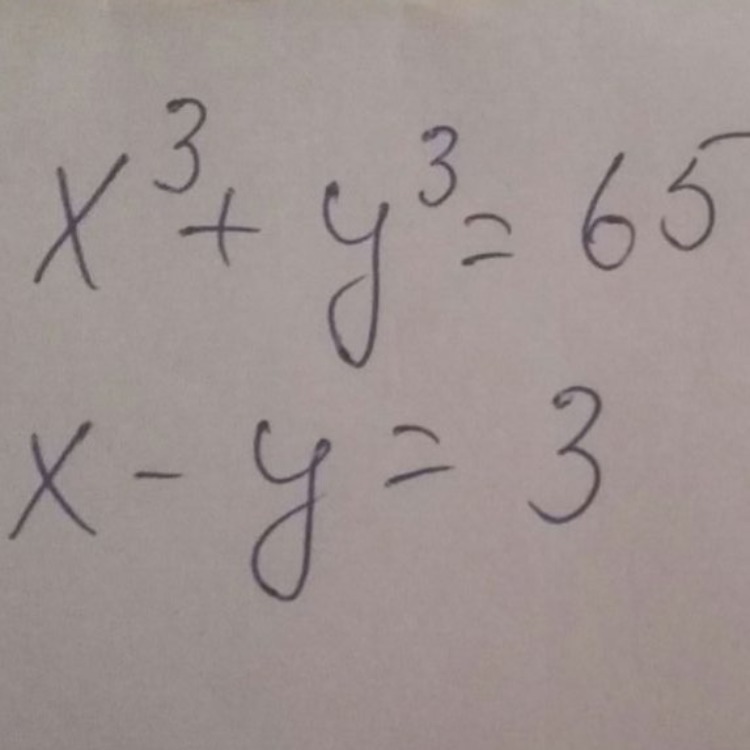 x³ + y³ = 65
x - y = 3